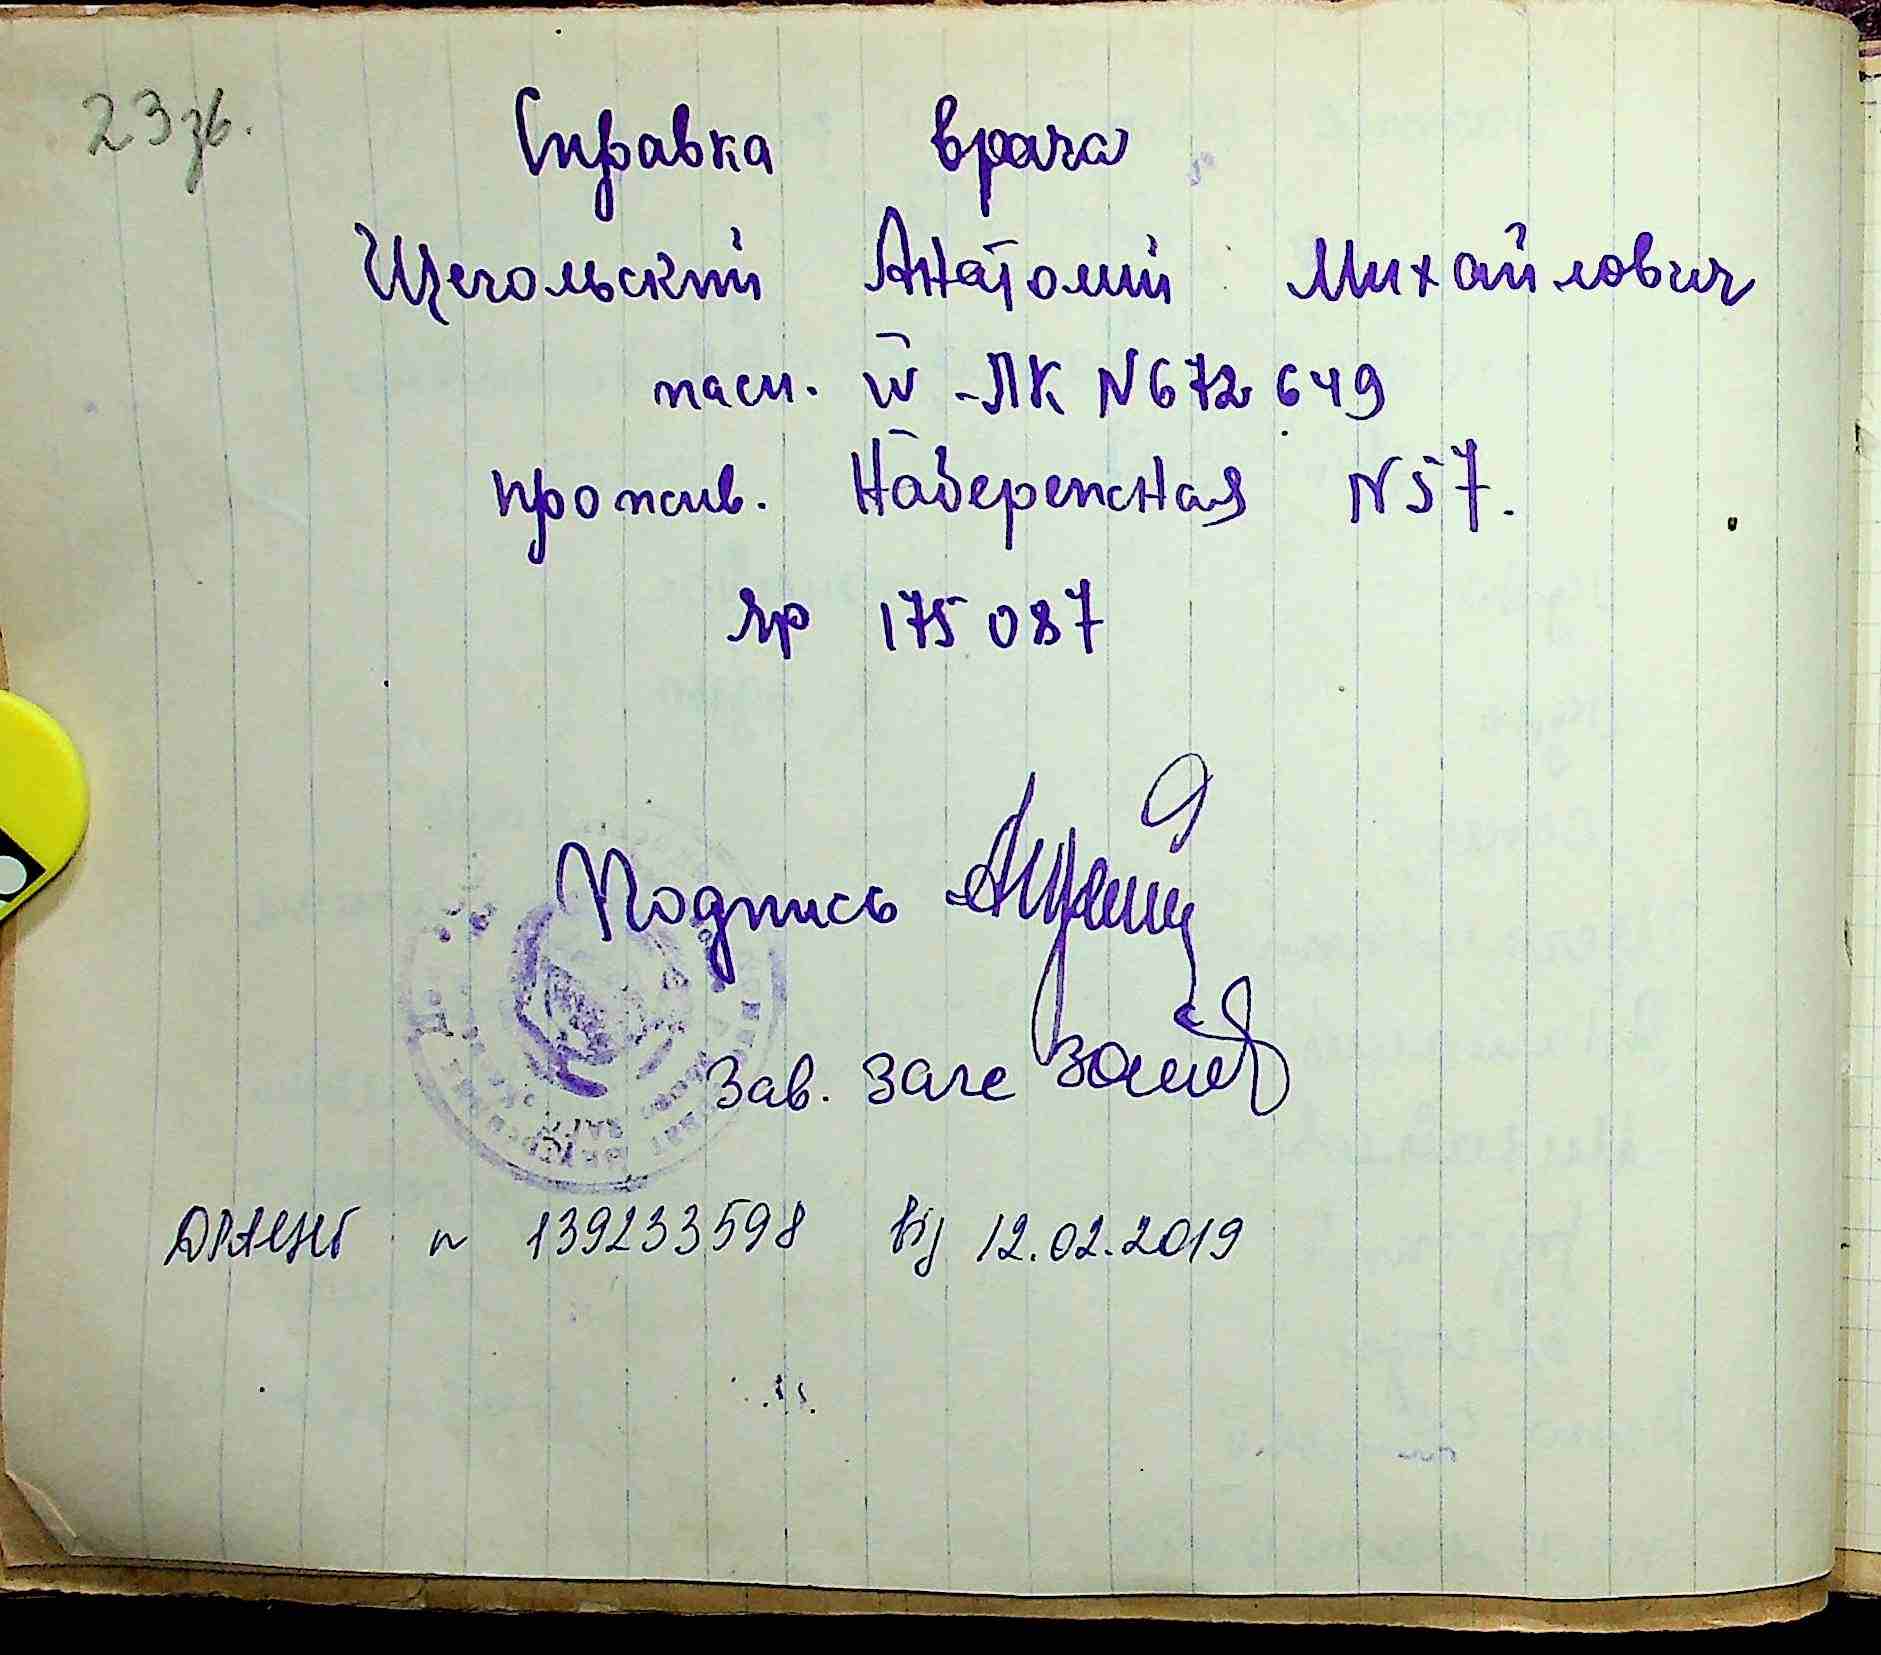 23 зв.
Справка врача
Щегольский Анатолий Михайлович
пасп. IV-ЛК N672649
прожив. Набережная N57.
яр 175087
Подпись
Зав. Загс
ДРАЦНГ № 139233598 від 12.02.2019